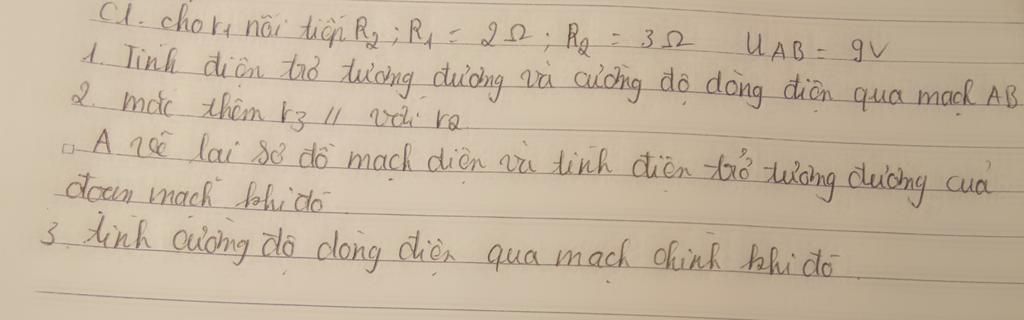 C1. cho r1 nối tiếp R2 ; R1 = 2Ω ; R2 = 3Ω UAB = 9V
1. Tính điện trở tương đương và cường độ dòng điện qua mạch AB
2. mắc thêm r3 // với r2
A vẽ lại sơ đồ mạch điện và tính điện trở tương đương của
đoạn mạch khi đó
3. tính cường độ dòng điện qua mạch chính khi đó